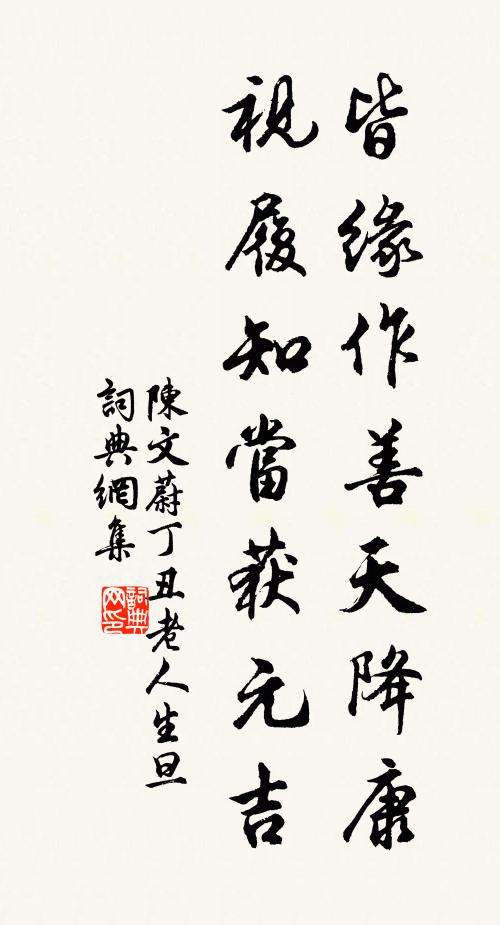 皆緣作善天降康
視履知當获元吉
陳文蔚丁丑老人生旦
詞典網集
詞典网印